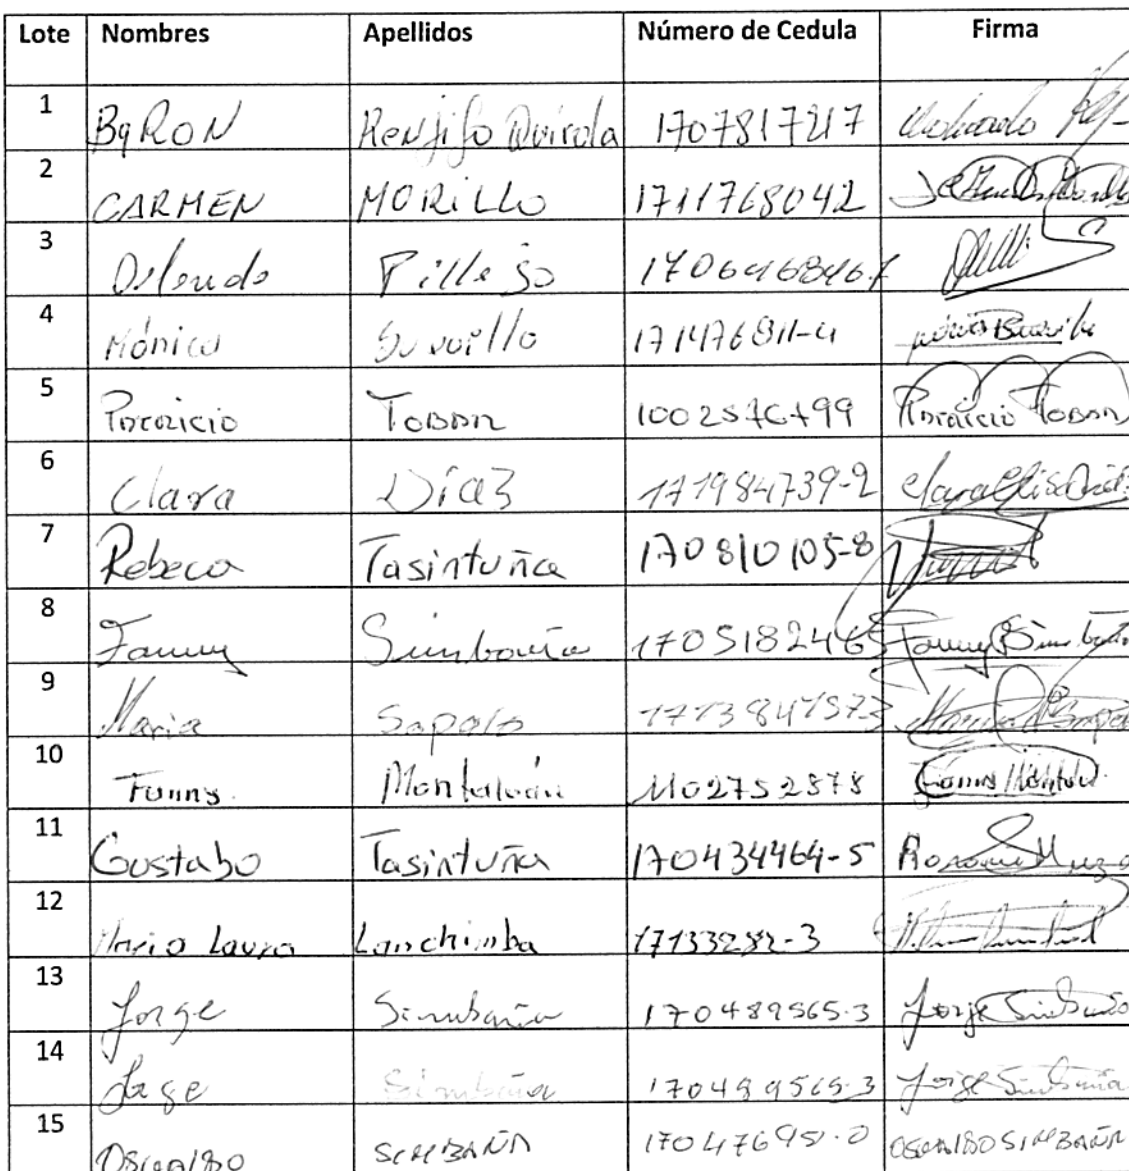 Lote Nombres Apellidos Número de Cedula Firma
1 ByRON Renjifo Quirola 1707817217
2 CARMEN MORILLO 1711768042
3 Orlando Pillajo
4 Mónica 171476811-4
5 Patricio TOBAR Patricio TOBAR
6 Clara Díaz 171984739-2 Clara Elisa Díaz
7 Rebeca Tasintuña 170810105-8
8 Fanny Simbaña 1705182465 Fanny Simbaña
9 Maria
10 Fanny Montalván 1102752878
11 Gustabo Tasintuña 170434464-5
12 Maria Laura Lanchimba 17133282-3
13 Jorge Simbaña 170489565-3 Jorge Simbaña
14 Jorge Simbaña 170489565-3 Jorge Simbaña
15 OSWALDO SIMBAÑA OSWALDO SIMBAÑA